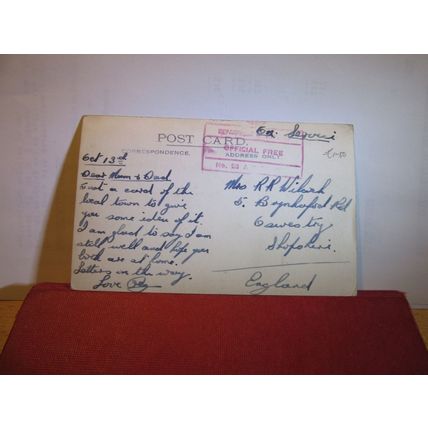 On Service
POST CARD.
CORRESPONDENCE.
OFFICIAL FREE
ADDRESS ONLY
£1-50
Oct 13th
Dear Mum & Dad
Just a card of the
local town to give
you some idea of it.
I am glad to say I am
still well and hope you
both are at home.
Letters on the way.
Love
Mrs R R
5.
Oswestry
Shropshire
England